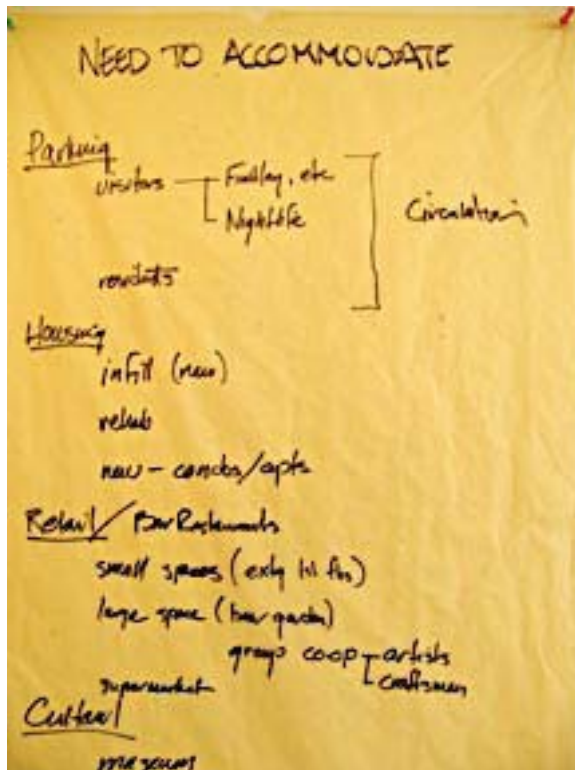 NEED TO ACCOMMODATE
Parking
visitors — Findlay, etc
Nightlife
Circulation
residents
Housing
infill (new)
rehab
new - condos/apts
Retail / Bar Restaurants
small spaces (
large space (
group co-op artists
craftsmen
supermarket
Cultural
museums